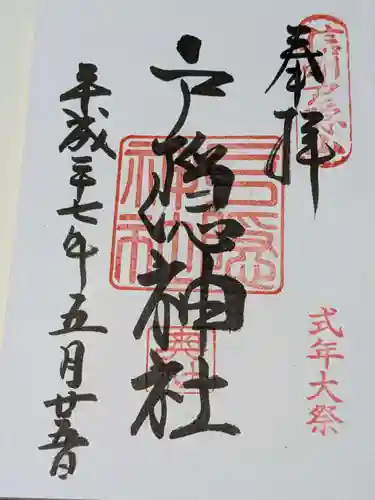 奉拝
信州戸隠山
式年大祭
戸隠神社
戸隠神社
奥社
平成二十七年五月廿五日